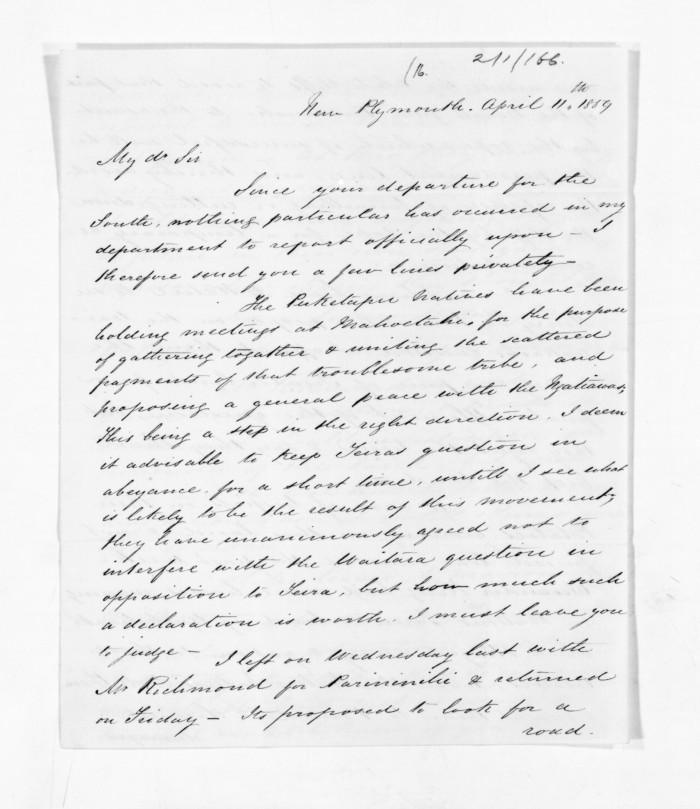 (16.
2/1/166.
New Plymouth. April 11th 1859
My dr Sir
Since your departure for the
South, nothing particular has occured in my
department to report officially upon — I
therefore send you a few lines privately —
The Puketapu Natives have been
holding meetings at Mahoetahi, for the purpose
of gathering together & uniting the scattered
fragments of that troublesome tribe, and
proposing a general peace with the Ngatiawas,
this being a step in the right direction. I deem
it advisable to keep Teiras question in
abeyance for a short time, untill I see what
is likely to be the result of this movement;
they have unanimously agreed not to
interfere with the Waitara question in
opposition to Teira, but how much such
a declaration is worth. I must leave you
to judge —
I left on Wednesday last with
Mr Richmond for Parininihi & returned
on Friday — Its proposed to look for a
road.